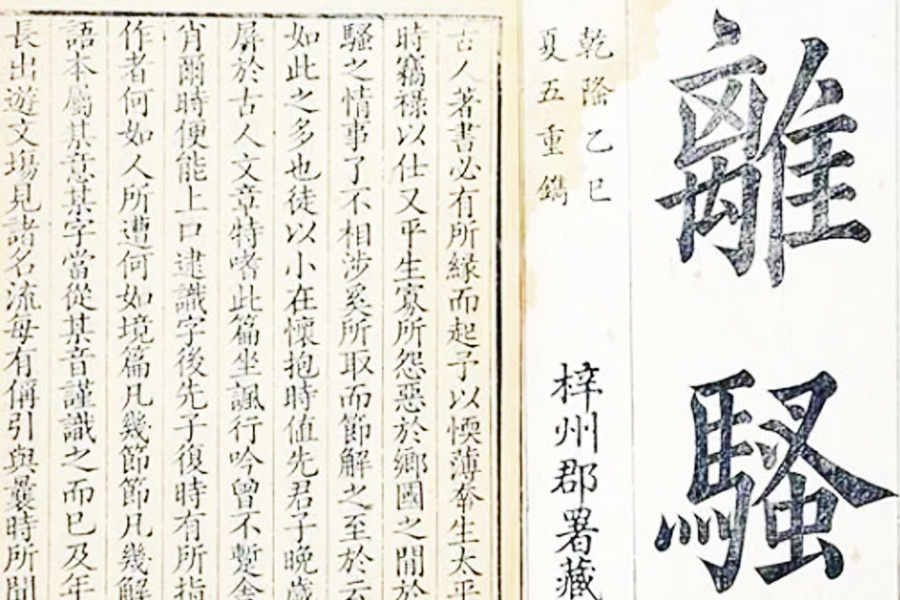 離騷
乾隆乙巳
夏五重鐫
梓州郡署藏
古人著書必有所緣而起予以愞薄奉生太平
時竊祿以仕又平生寡所怨惡於鄉國之間於
騷之情事了不相涉奚所取而節解之至於云
如此之多也徒以小在懷抱時值先君子晚歲
屏於古人文章特嗜此篇坐諷行吟曾不蹔舍
肖爾時便能上口逮識字後先子復時有所指
作者何如人所遭何如境篇凡幾節節凡幾解
語本屬某意某字當從某音謹識之而已及年
長出遊文場見諸名流每有偁引與曩時所聞